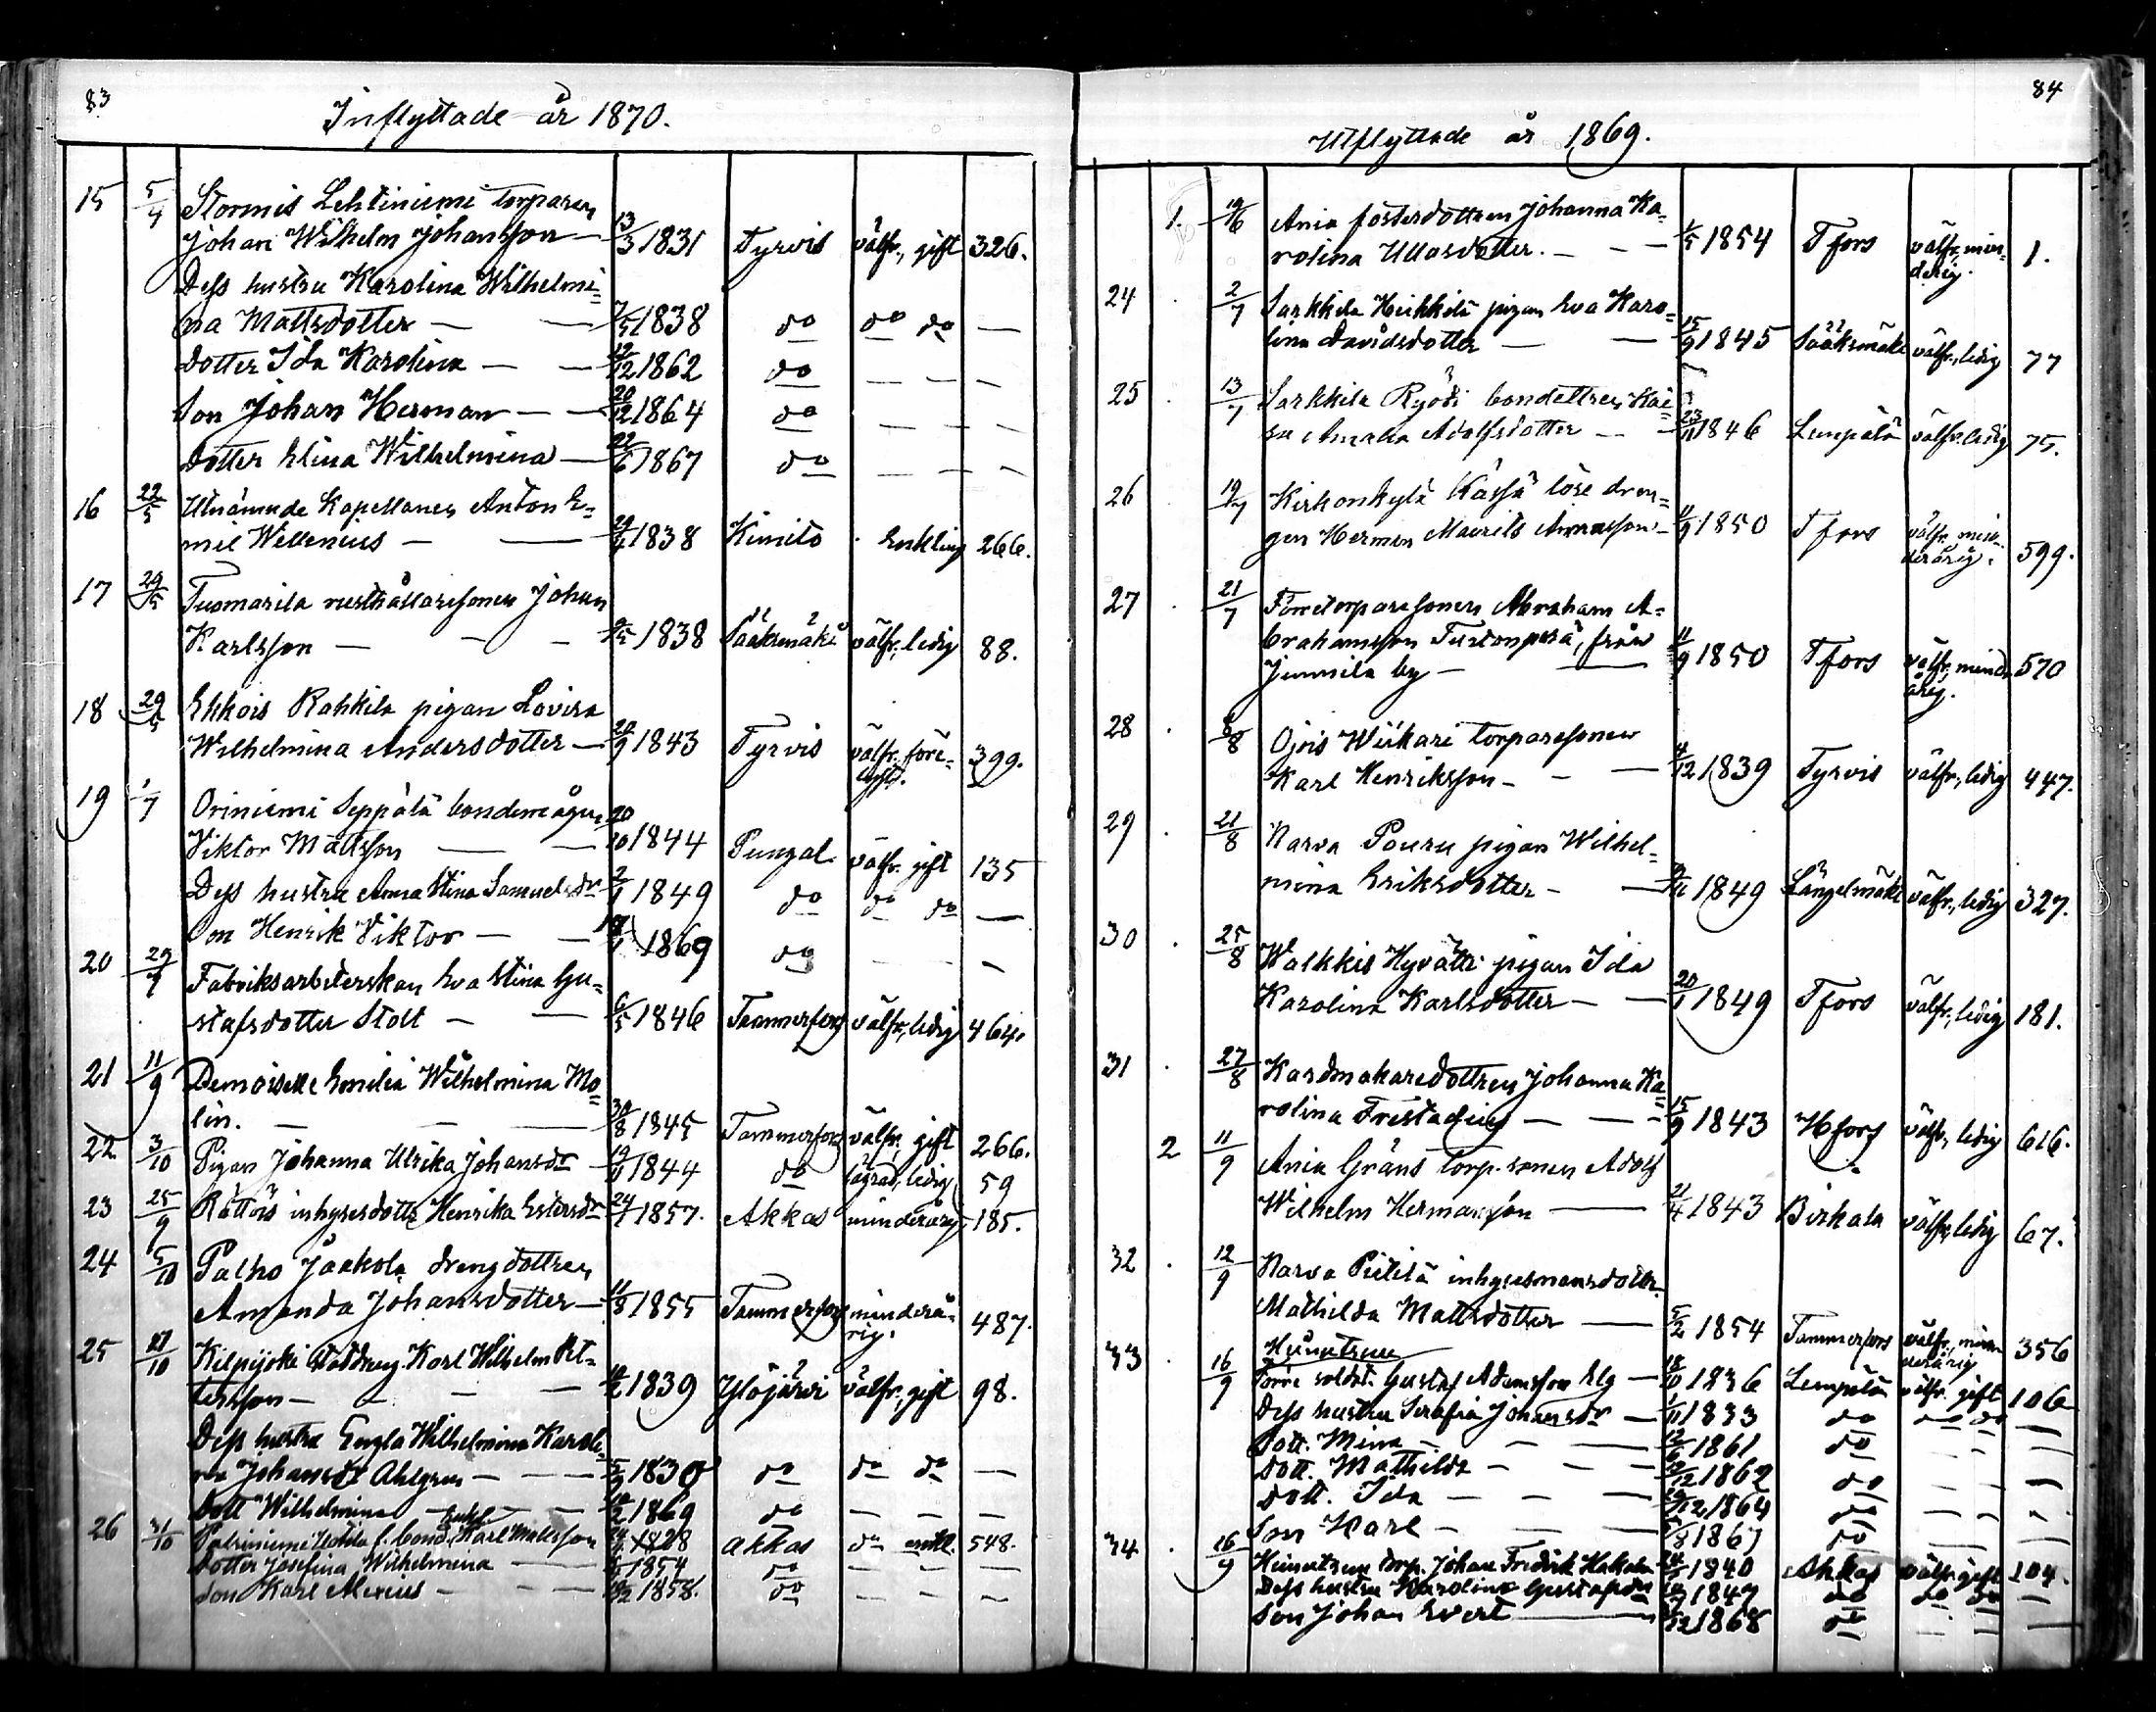 83
Inflyttade år 1870.
15 5/4 Stormis Lehtiniemi torparen
Johan Wilhelm Johansson — 13/3 1831 Tyrvis välfr., gift 326.
Dess hustru Karolina Wilhelmi=
na Mattsdotter — — 7/5 1838 do do do —
Dotter Ida Karolina — — 19/12 1862 do — — —
Son Johan Herman — — 20/12 1864 do — — —
Dotter Elina Wilhelmina — 22/6 1867 do — — —
16 22/5 Utnämnde Kapellanen Anton E=
mil Wellenius — — 1838 Kimito Enkling 266.
17 29/5 Tuomarila rusthållaresonen Johan
Karlsson — — — 1838 Sääksmäki välfr., ledig 88.
18 29/5 Ehkois Rahkila pigan Lovisa
Wilhelmina Andersdotter — 20/9 1843 Tyrvis välfr. före=
399.
19 1/7 Oriniemi Seppälä bondemågen
Viktor Mattsson — — 20/10 1844 Pungal. välfr. gift 135
Dess hustru Anna Stina Samuelsdr 2/1 1849 do do do —
Son Henrik Viktor — — 1869 do — —
20 29/7 Fabriksarbeterskan Eva Stina Gu=
stafsdotter Stolt — — 6/5 1846 Tammerfors välfr., ledig 464.
21 11/9 Demoiselle Emilia Wilhelmina Mo=
lin. — — — 30/8 1845 Tammerfors välfr., gift 266.
22 3/10 Pigan Johanna Ulrika Johansdr — 1844 do lägrad, ledig 59
23 25/9 Rättöis inhysesdottr Henrika Estersdr 24/7 1857. Akkas minderårig 185.
24 5/10 Palho Jaakola drengdottren
Amanda Johansdotter — 11/8 1855 Tammerfors minderå=
rig. 487.
25 21/10 Kilpijoki statdreng Karl Wilhelm Pet=
tersson — — — 1839 Ylöjärvi välfr., gift 98.
Dess hustru Engla Wilhelmina Karoli=
na Johansdr Ahlgren — — — 5/9 1830 do do do —
Dott Wilhelmina — — — 1869 do — — —
26 31/10 f. bond. Karl Mattsson 1828 Akkas do enkl. 548.
Dotter Josefina Wilhelmina — 1854 do — — —
Son Karl Alexius — — 1858. do — — —
84
Utflyttade år 1869.
1. 19/6 Ania fosterdottren Johanna Ka=
rolina Ullasdotter. — — 1/5 1854 Tfors välfr., min=
derig. 1.
24 2/7 Sarkkila Heikkilä pigan Eva Karo=
lina Davidsdotter — — 15/9 1845 Sääksmäki välfr., ledig 77
25 13/7 Sarkkila Ryödi bondottren Kai=
sa Amalia Adolfsdotter — — 23/11 1846 Lempälä välfr. ledig 75.
26 19/7 Kirkonkylä Kässä löse dren=
gen Herman Maurits Annasson — 1850 Tfors välfr., min=
derårig. 599.
27 21/7 Förretorparesonen Abraham A=
brahamsson Turtonperä, från
Junnila by — — 11/9 1850 Tfors välfr., minder
årig. 570
28 6/8 Ojois Wiikari torparesonen
Karl Henriksson — — — 4/12 1839 Tyrvis välfr., ledig 447.
29 21/8 Narva Pouru pigan Wilhel=
mina Eriksdotter — — 1849 Längelmäki välfr., ledig 327.
30 25/8 Walkkis Hyvätti pigan Ida
Karolina Karlsdotter — — 20/1 1849 Tfors välfr., ledig 181.
31 27/8 Kardmakaredottren Johanna Ka=
rolina Frestadius — — — 15/9 1843 Hfors välfr., ledig 616.
2 11/9 Ania Gräns torp. sonen Adolf
Wilhelm Hermansson — 21/4 1843 Birkala välfr., ledig 67.
32 12/9 Narva Piitilä inhysesmansdottr
Mathilda Mattsdotter — 5/2 1854 Tammerfors välfr., min
derårig 356
33 16/9 Förre soldat. Gustaf Adamsson Elg — 18/10 1836 Lempälä välfr. gift 106
Dess hustru Serafia Johansdr — 1/11 1833 do do do —
Dott. Mina — — — 12/6 1861 do — — —
Dott. Mathilda — — — 1862 do — — —
Dott. Ida — — — 1864 do — — —
Son Karl — — — 1867 do — — —
34 16/9 torp. Johan Fredrik 1840 Akkas välfr. gift 104.
Dess hustru Karolina Gustafsdr 1847 do do do —
Son Johan Evert — 1868 do — — —